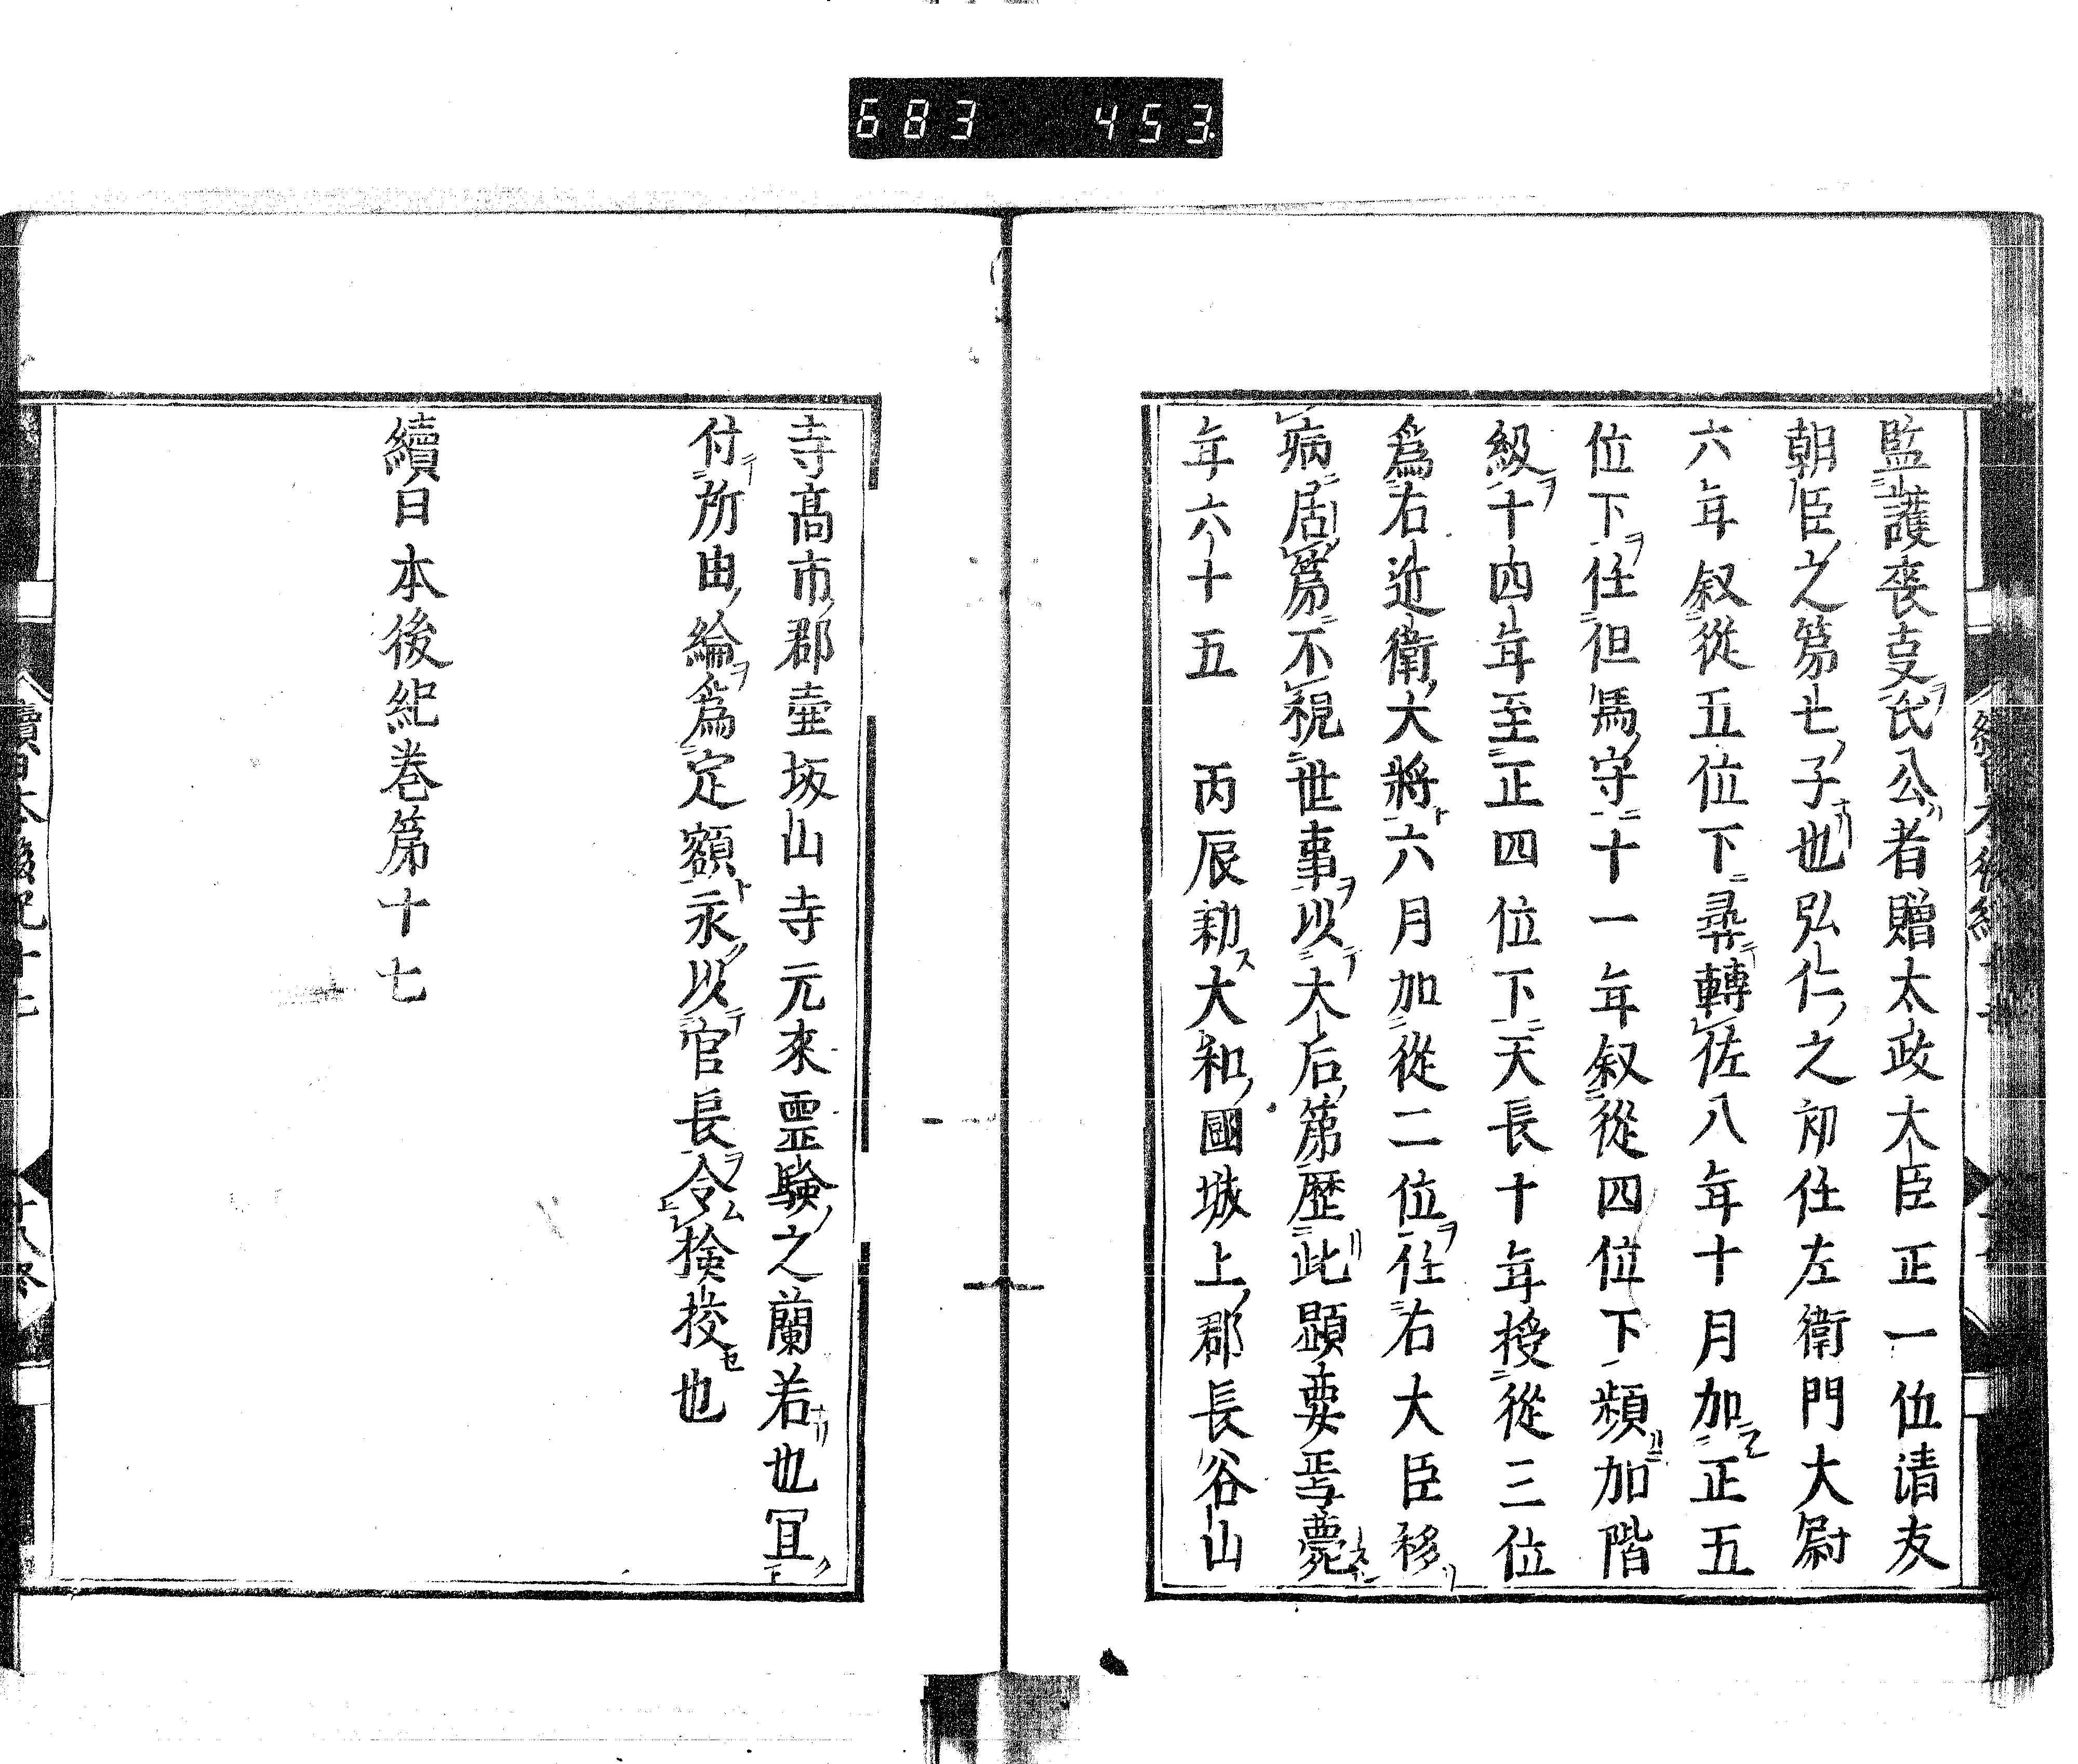 683 453
監護喪叓氏公者贈太政大臣正一位清友
朝臣之第七子也弘仁之初任左衛門大尉
六年叙從五位下尋轉佐八年十月加正五
位下任但馬守十一年叙從四位下頻加階
級十四年至正四位下天長十年授從三位
爲右近衛大將六月加從二位任右大臣移
病居第不視世事以大后第歴此顕要焉薨
年六十五　丙辰勅大和國城上郡長谷山
寺髙市郡壷坂山寺元來霊驗之蘭若也冝
付所由綸爲定額永以官長令檢挍也
續日本後紀巻第十七